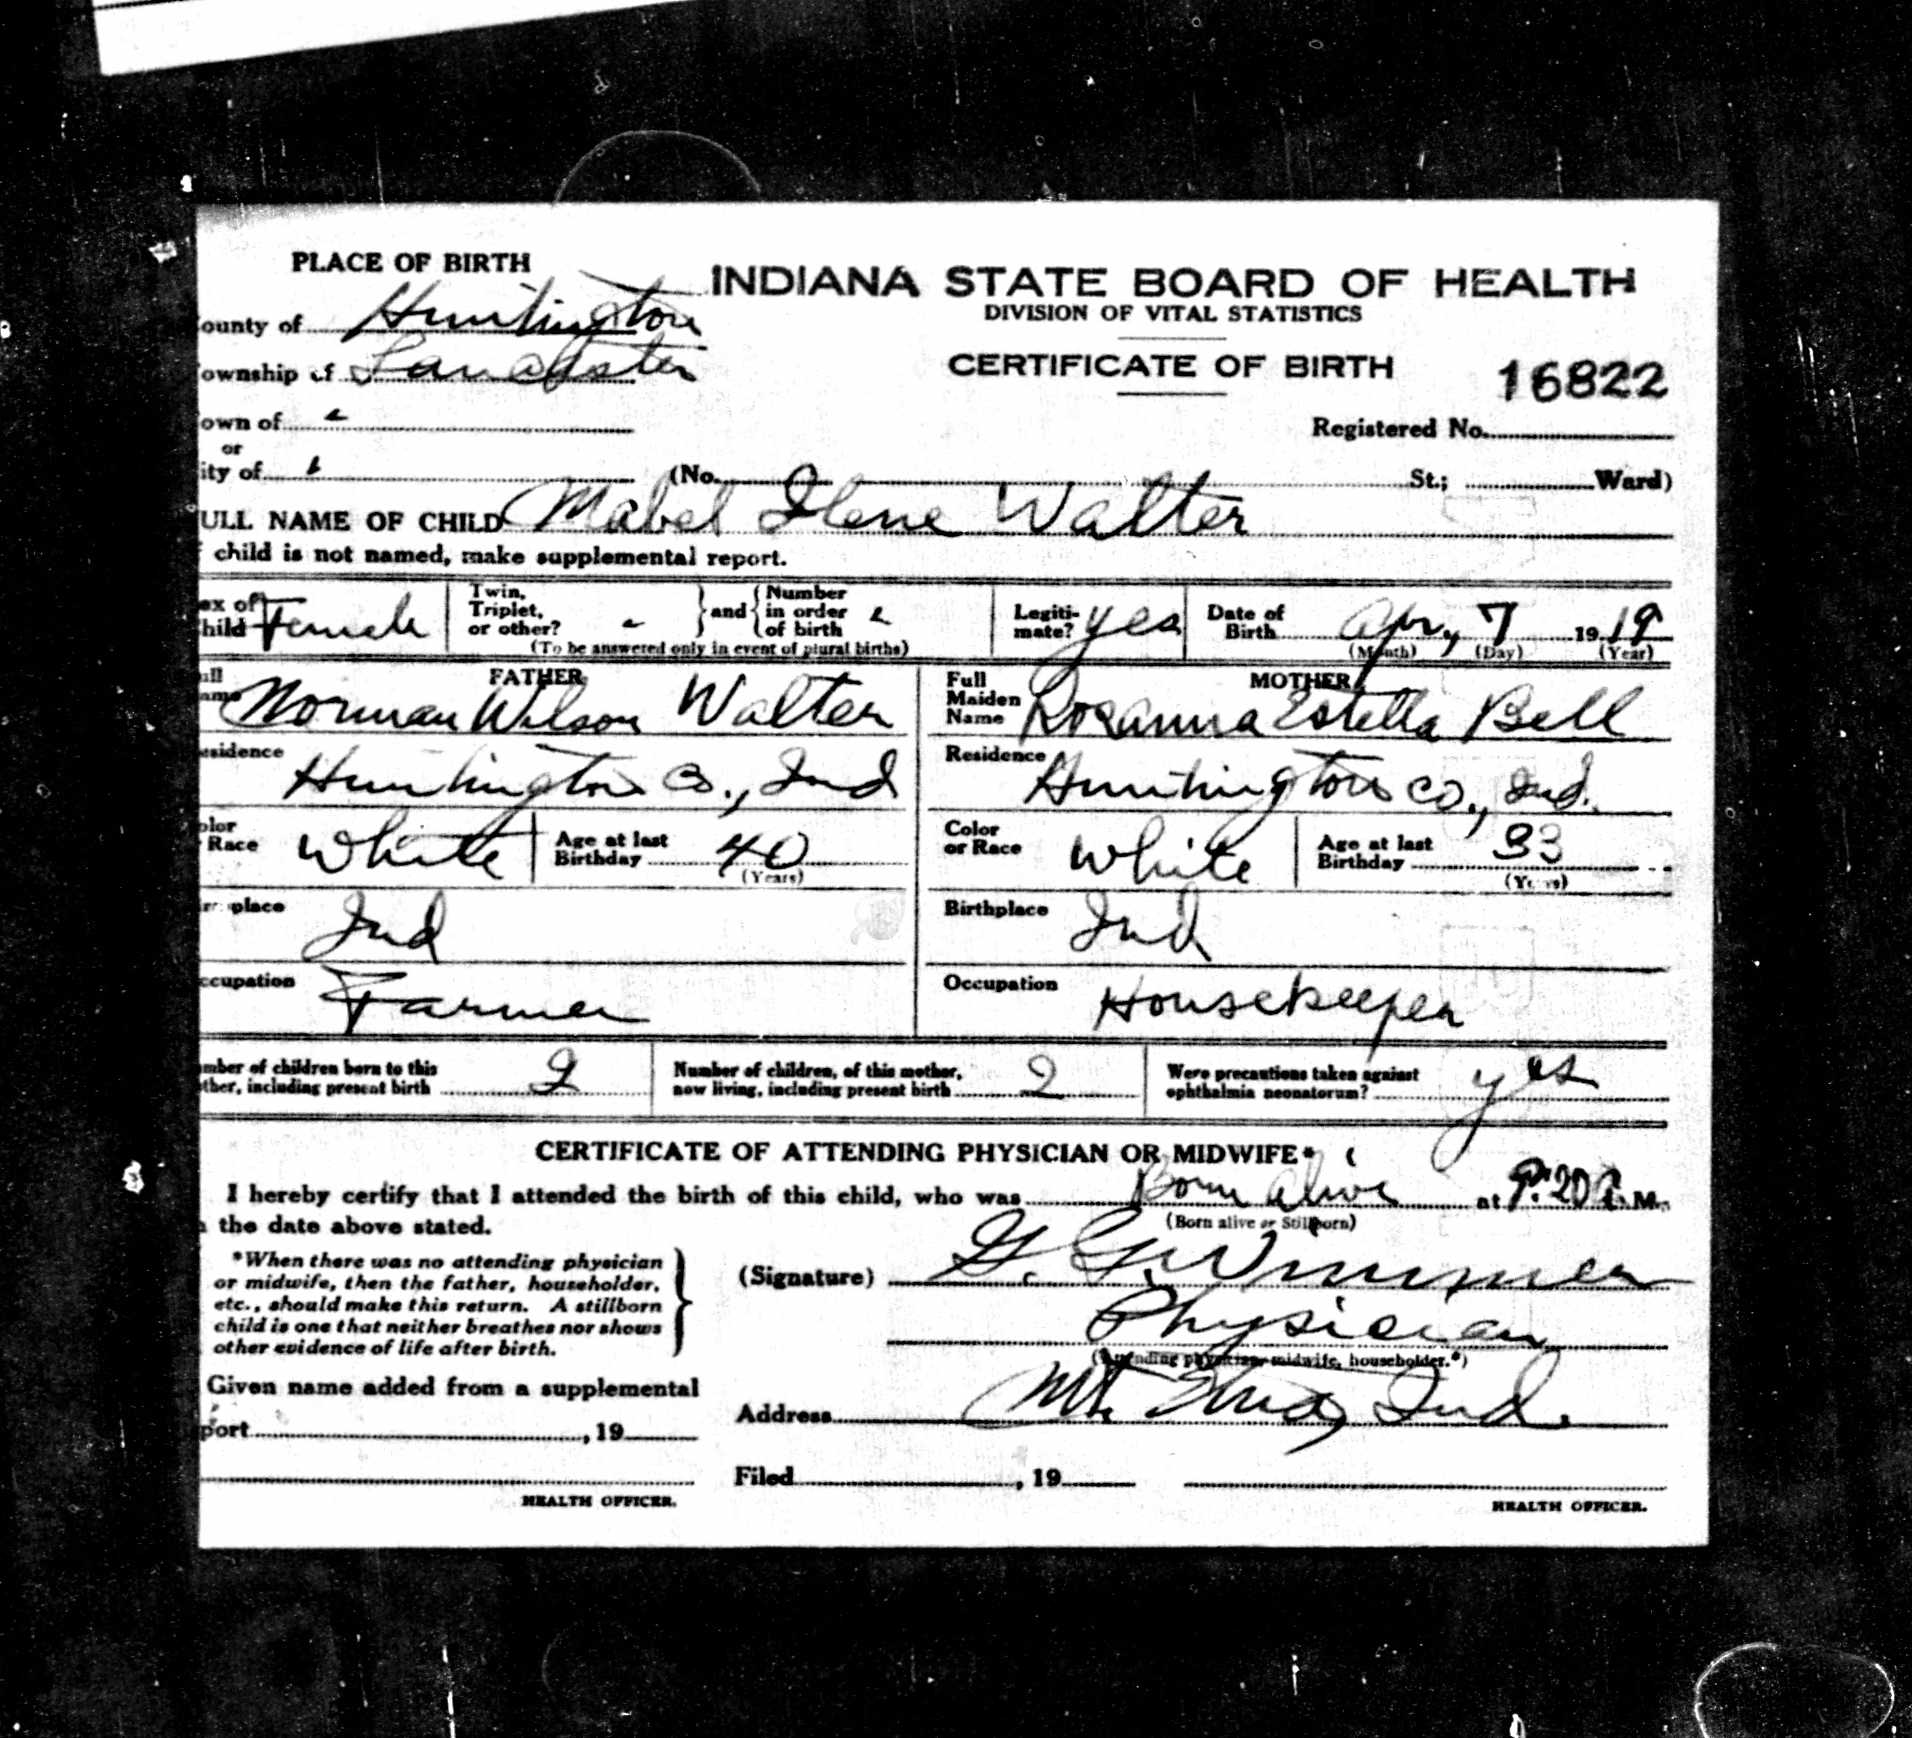 PLACE OF BIRTH
INDIANA STATE BOARD OF HEALTH
DIVISION OF VITAL STATISTICS
ounty of Huntington
CERTIFICATE OF BIRTH
16822
ownship of Lancaster
own of
Registered No.
or
ity of (No. St.; Ward)
ULL NAME OF CHILD Mabel Ilene Walter
child is not named, make supplemental report.
ex of hild Female
Twin, Triplet, or other? - and Number in order of birth
(To be answered only in event of plural births)
Legiti-mate? yes
Date of Birth Apr, 7 1919
(Month) (Day) (Year)
FATHER
ull ame Norman Wilson Walter
MOTHER
Full Maiden Name Rosanna Estella Bell
esidence Huntington Co., Ind
Residence Huntington Co., Ind.
olor Race White
Age at last Birthday 40
(Years)
Color or Race White
Age at last Birthday 33
(Years)
place Ind
Birthplace Ind
ccupation Farmer
Occupation Housekeeper
mber of children born to this
ther, including present birth 2
Number of children, of this mother,
now living, including present birth 2
Were precautions taken against
ophthalmia neonatorum? yes
CERTIFICATE OF ATTENDING PHYSICIAN OR MIDWIFE*
I hereby certify that I attended the birth of this child, who was Born alive at M.,
the date above stated.
(Born alive or Stillborn)
*When there was no attending physician
or midwife, then the father, householder,
etc., should make this return. A stillborn
child is one that neither breathes nor shows
other evidence of life after birth.
(Signature) G. G. Wimmer
Physician
(Attending physician, midwife, householder.*)
Given name added from a supplemental
port , 19
Address Mt. Etna, Ind.
Filed , 19
HEALTH OFFICER.
HEALTH OFFICER.